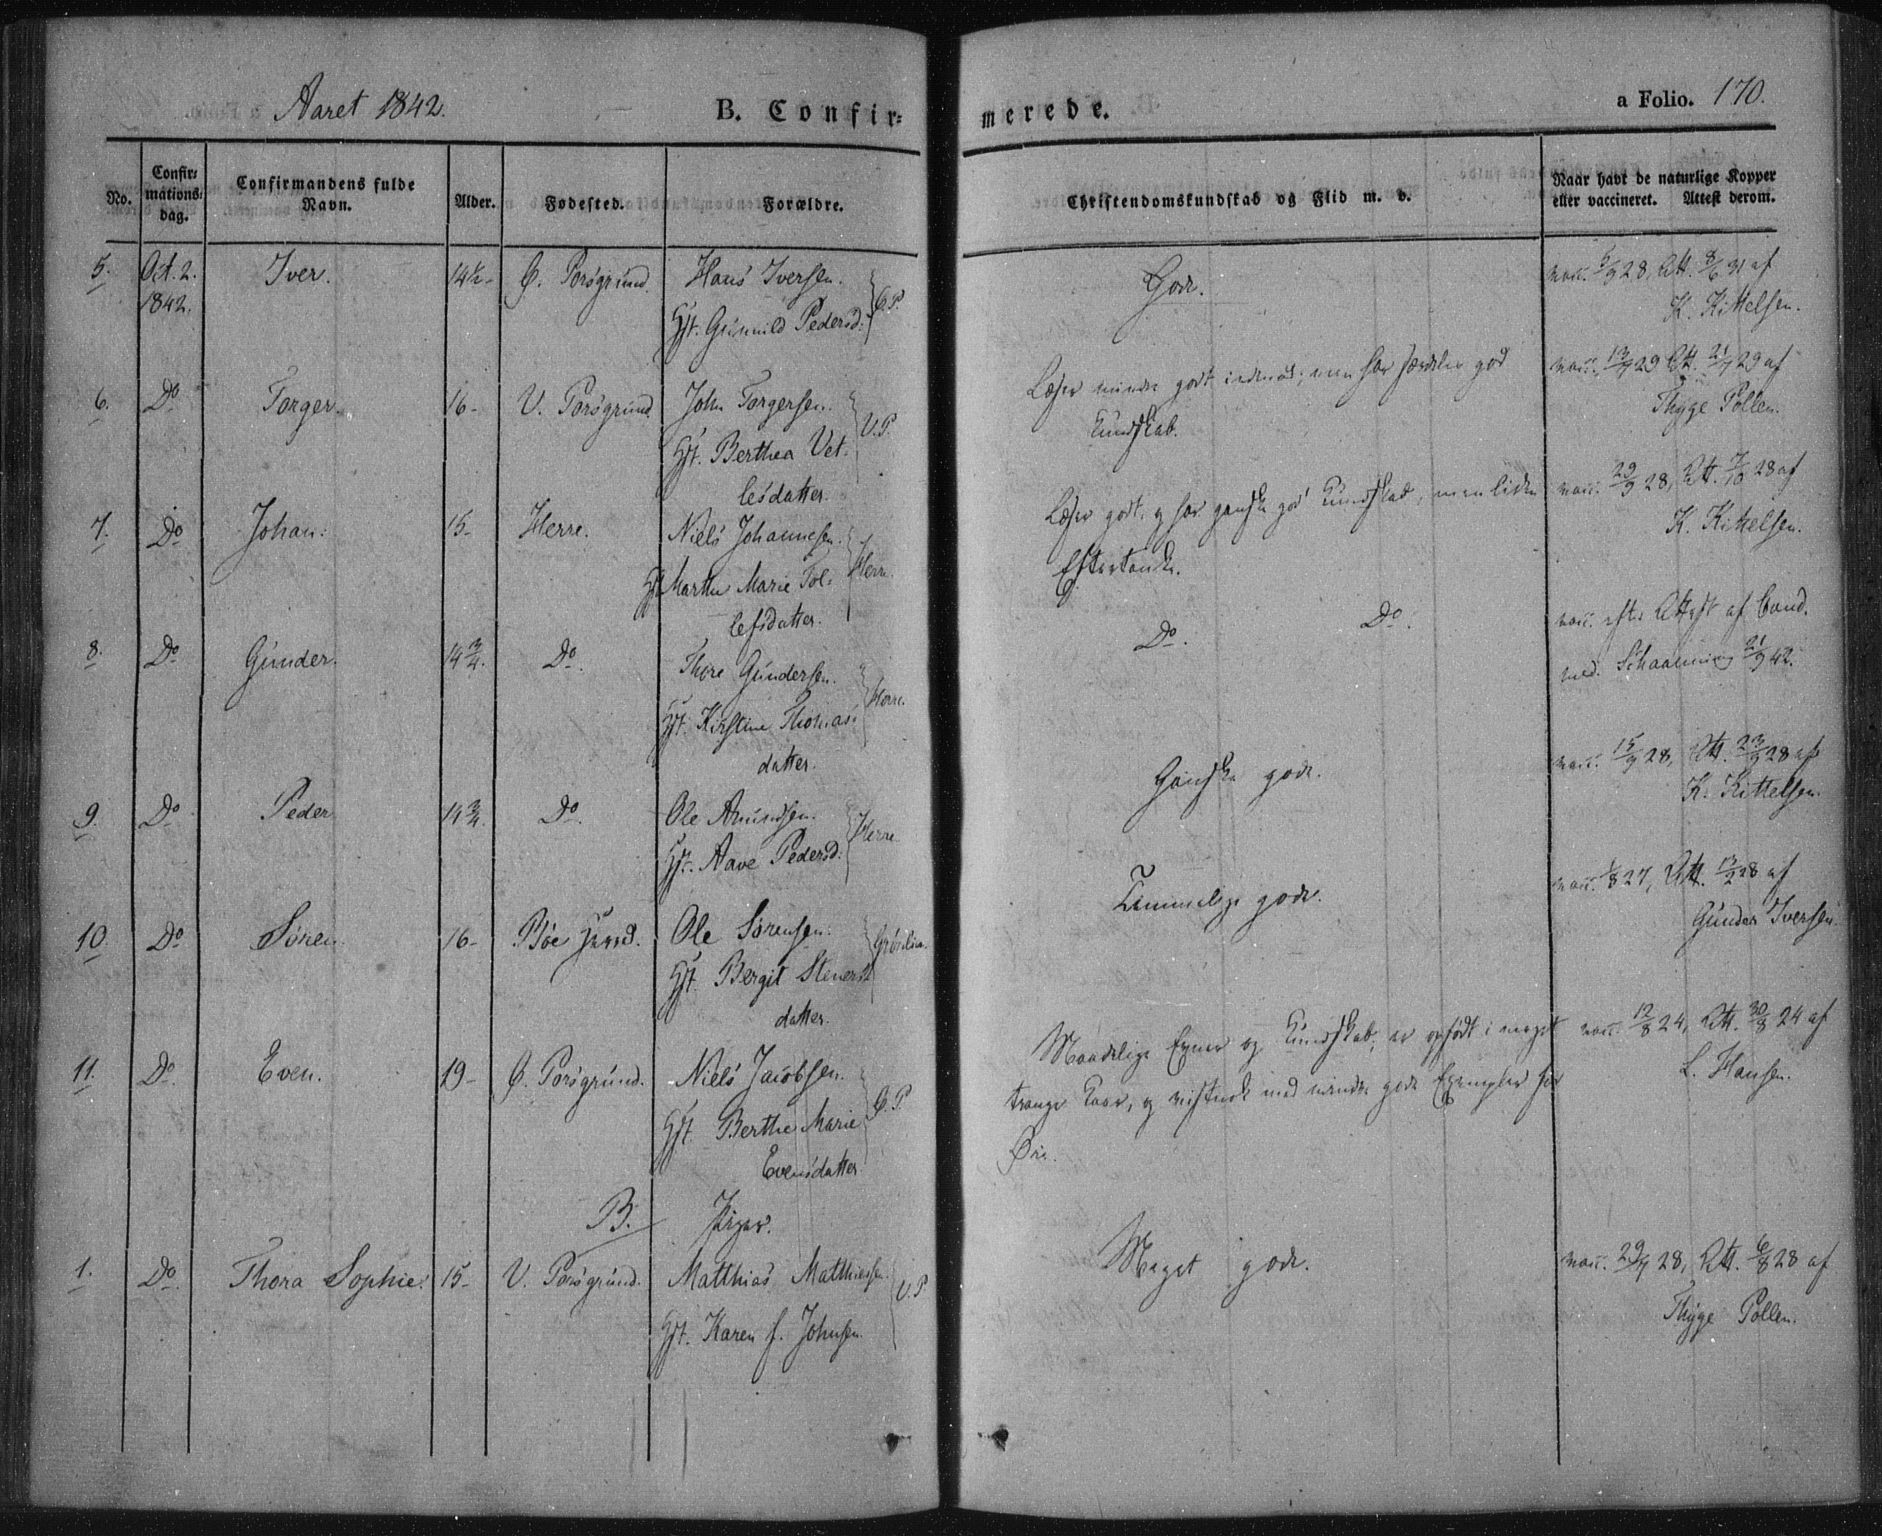 Aaret 1842.
B. Confir=
merede.
a Folio. 170.
No.
Confir= mations= dag.
Confirmandens fulde Navn.
Alder.
Fødested.
Forældre.
Christendomskundskab og Flid m. v.
Naar havt de naturlige Kopper eller vaccineret. Attest derom.
5. Oct. 2. Iver. 14½- Ø. Porsgrund. Hans Iversen. Ø.P. Gode. vacc. 5/9 28, Att. 8/6 31 af
1842. Hst. Gunnild Pedersd: K. Kittelsen.
6. Do Torger. 16- V. Porsgrund. John Torgersen. V.P. Læser mindre godt indenad; men har særdeles god vacc. 13/7 29 Att. 21/7 29 af
Hst. Berthea Vet- Kundskab. Thyge Pollen.
lesdatter.
7. Do Johan: 15- Herre. Niels Johannesen. Herre. Læser godt, og har ganske god Kundskab, men liden vacc. 29/9 28, Att. 7/10 28 af
Hst Marthe Marie Tol- Eftertanke. K. Kittelsen.
lefsdatter.
8. Do Gunder. 14¾. Do. Thore Gundersen. Herre. Do. Do. vacc. efter Attest af Cand.
Hst. Kirstine Thomas- med. Schaanning 21/9 42.
datter.
9. Do Peder 14¾. Do. Ole Amundsen. Herre Ganske gode. vacc. 15/9 28, Att. 23/9 28 af
Hst. Aave Pedersd: K. Kittelsen.
10. Do Søren. 16- Bøe Ole Sørensen. Temmelige gode. vacc. 1/8 27, Att. 13/2 28 af
Hst. Bergit Steners Gunder Iversen.
datter.
11. Do. Even. 19- Ø. Porsgrund. Niels Jacobsen. Ø.P Maadelige Evner og Kundskab; er opfødt i meget vacc. 12/8 24, Att. 30/8 24 af
Hst. Berthe Marie trange Kaar, og vistnok med mindre gode Exempler for L. Hansen.
Evensdatter Øie.
B. Piger.
1. Do. Thora Sophie. 15- V. Porsgrund. Matthias Matthiesen. V.P. Meget gode. vacc. 29/7 28, Att. 6/8 28 af
Hst. Karen f. Johnsen. Thyge Pollen.